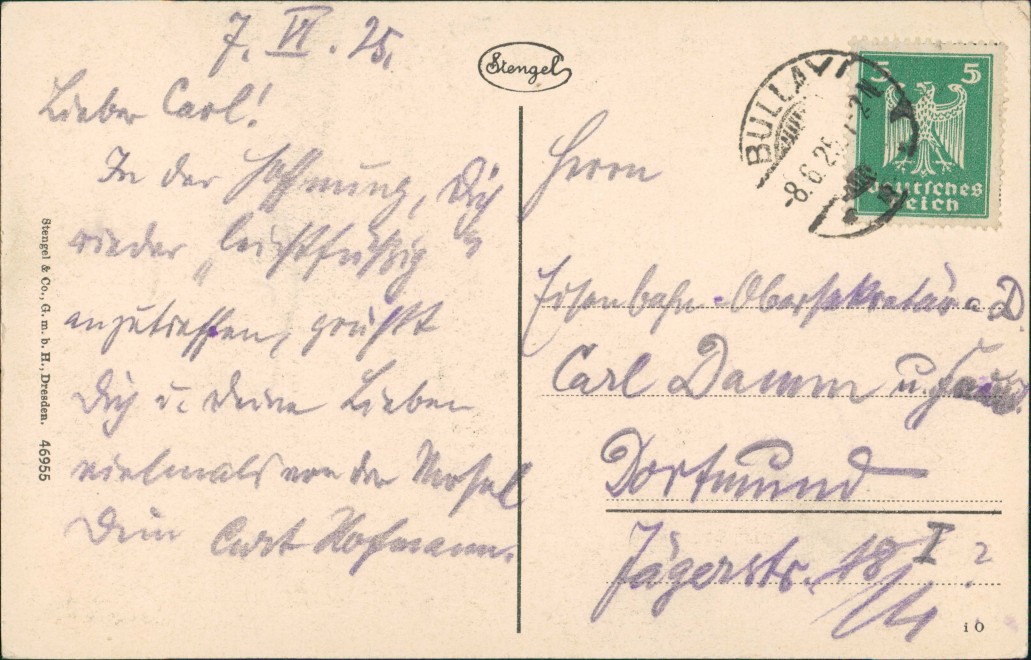 7. VI. 25.
Lieber Carl!
In der Hoffnung, Dich
wieder "leichtfüßig"
anzutreffen, grüßt
Dich u. Deine Lieben
vielmals von der Mosel
Dein Curt Hofmann.
Stengel & Co., G. m. b. H., Dresden. 46955
Stengel
BULLAY
-8.6.25.
5 5
Deutsches
Reich
Herrn
Eisenbahn-Obersekretär a. D.
Carl Damm u.
Dortmund
Jägerstr. 18 I ?
10